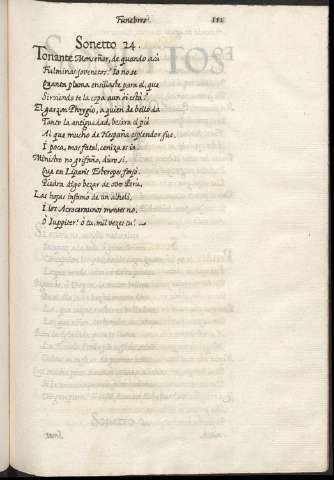 Funebres. 111
Sonetto 24.
Tonante Monseñor, de quando acá
Fulminas jovenetos? Io no sé
Quanta pluma ensillaste para el, que
Sirviendo te la copa aun oi está?
El garzon Phrygio, a quien de bello da
Tanto la antiguedad, besara el pié
Al que mucho de España esplendor fue,
I poca, mas fatal, ceniza es ia.
Ministro no grifaño, duro si,
Que en Liparis Esterope forjó
Piedra digo bezar de otro Peru,
Las hojas infamó de un alheli,
I los Acroceraunos montes no.
O Iuppiter! ó tu, mil vezes tu!